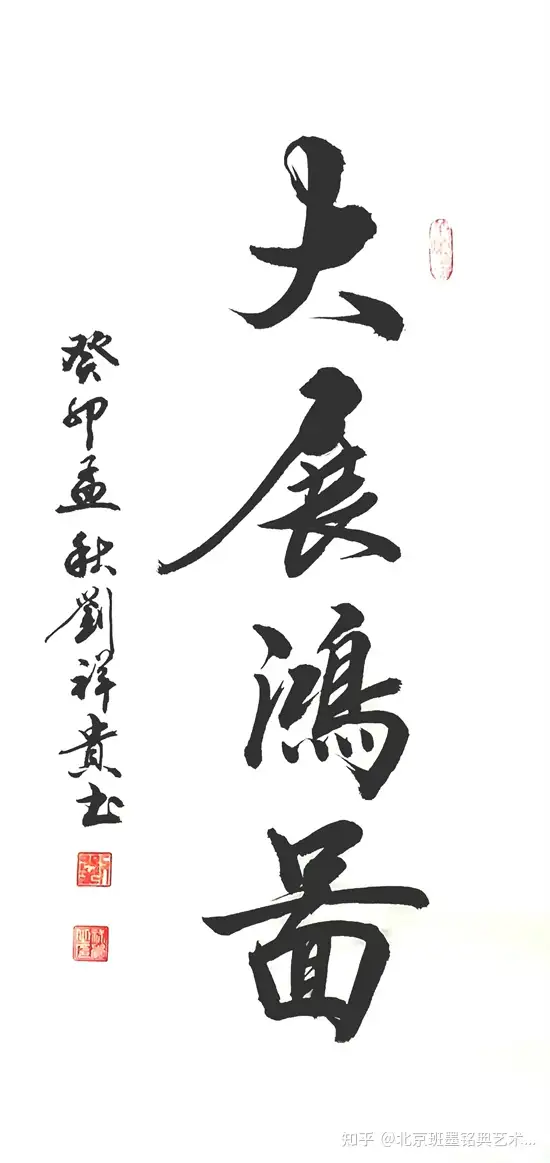 大展鴻圖
癸卯孟秋劉祥貴书
知乎 @北京班墨铭典艺术...